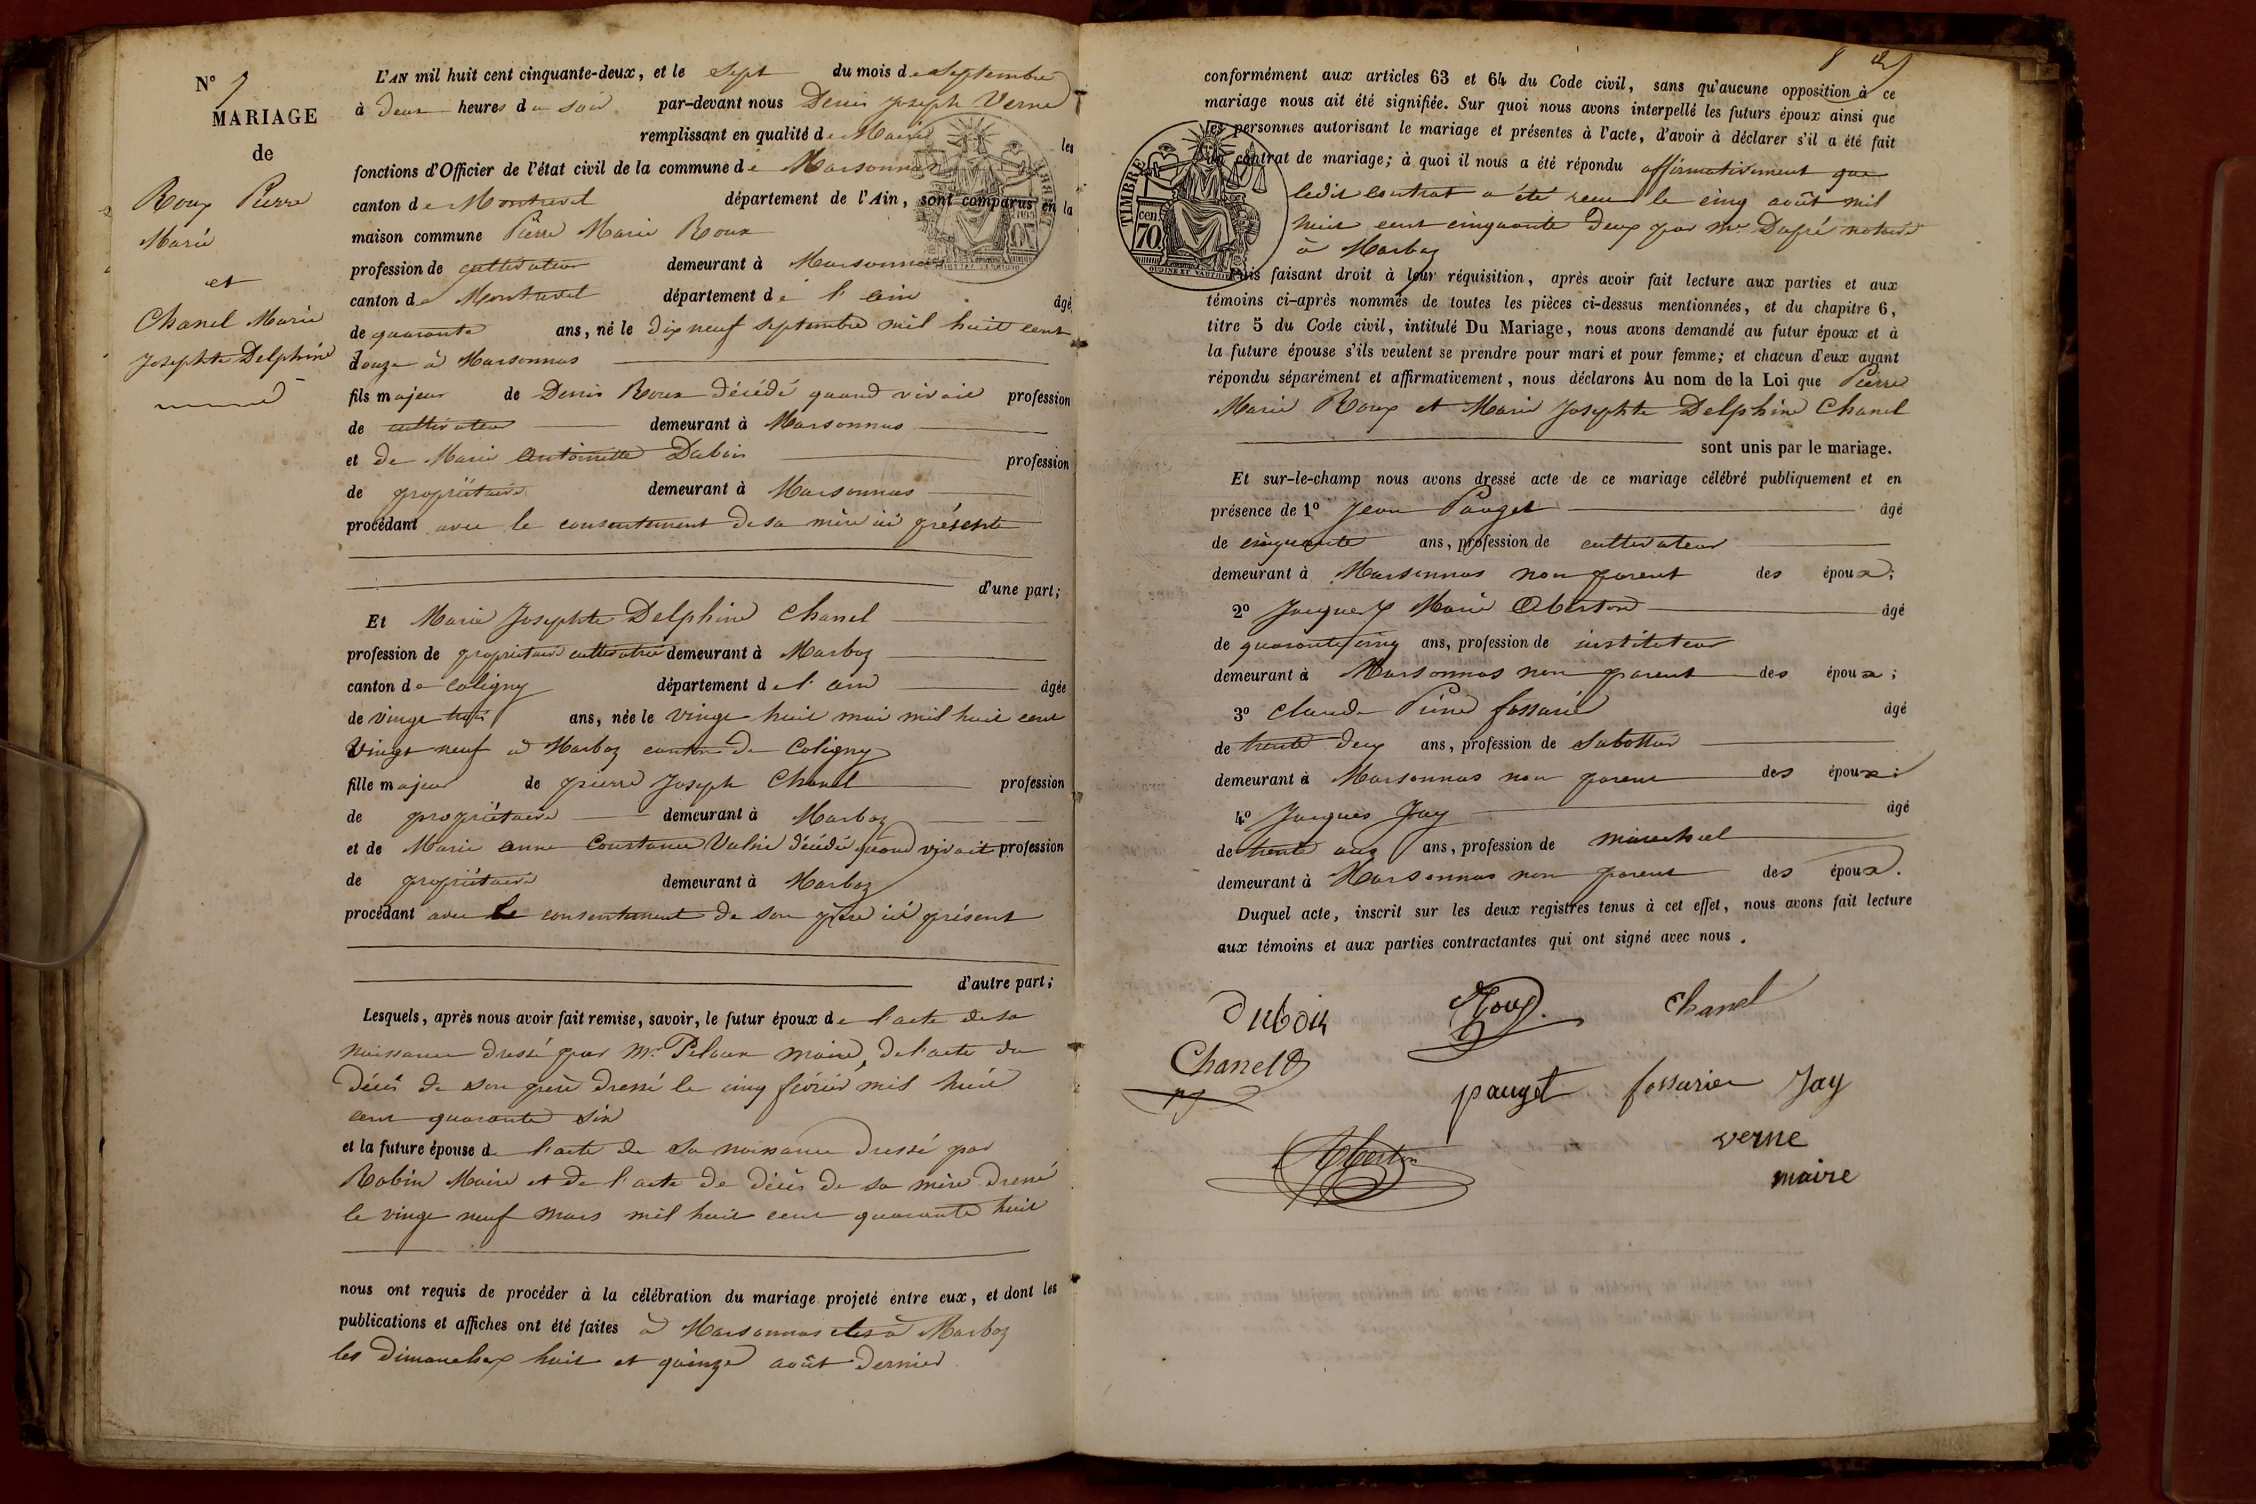 N° 7
MARIAGE
de
Roux Pierre
Marie
et
Chanel Marie
Josephte Delphine
L'AN mil huit cent cinquante-deux, et le sept du mois de septembre
à deux heures du soir par-devant nous Denis Joseph Verne
remplissant en qualité de Maire les
fonctions d'Officier de l'état civil de la commune de Marsonnas
canton de Montrevel département de l'Ain, sont comparus en la
maison commune Pierre Marie Roux
profession de cultivateur demeurant à Marsonnas
canton de Montrevel département de l'ain âgé
de quarante ans, né le dix neuf septembre mil huit cent
douze à Marsonnas
fils majeur de Denis Roux décédé quand vivait profession
de cultivateur demeurant à Marsonnas
et de Marie Antoinette Dubois profession
de propriétaire demeurant à Marsonnas
procédant avec le consentement de sa mère ici présente
d'une part;
Et Marie Josephte Delphine Chanel
profession de propriétaire cultivatrice demeurant à Marboz
canton de Coligny département de l'ain âgée
de vingt trois ans, née le vingt huit mai mil huit cent
vingt neuf à Marboz canton de Coligny
fille majeur de pierre Joseph Chanel profession
de propriétaire demeurant à Marboz
et de Marie anne Constance décédé quand vivait profession
de propriétaire demeurant à Marboz
procédant avec le consentement de son père ici présent
d'autre part;
Lesquels, après nous avoir fait remise, savoir, le futur époux de l'acte de sa
naissance dressé par Mr. maire, de l'acte du
décès de son père dressé le cinq février mil huit
cent quarante six
et la future épouse de l'acte de sa naissance dressé par
Robin Maire et de l'acte de décès de sa mère dressé
le vingt neuf mars mil huit cent quarante huit
nous ont requis de procéder à la célébration du mariage projeté entre eux, et dont les
publications et affiches ont été faites à Marsonnas et à Marboz
les dimanches huit et quinze août dernier
8
conformément aux articles 63 et 64 du Code civil, sans qu'aucune opposition à ce
mariage nous ait été signifiée. Sur quoi nous avons interpellé les futurs époux ainsi que
les personnes autorisant le mariage et présentes à l'acte, d'avoir à déclarer s'il a été fait
un contrat de mariage; à quoi il nous a été répondu affirmativement que
ledit contrat a été reçu le cinq août mil
huit cent cinquante deux par Me. notaire
à Marboz
TIMBRE
cen. 70
Puis faisant droit à leur réquisition, après avoir fait lecture aux parties et aux
témoins ci-après nommés de toutes les pièces ci-dessus mentionnées, et du chapitre 6,
titre 5 du Code civil, intitulé Du Mariage, nous avons demandé au futur époux et à
la future épouse s'ils veulent se prendre pour mari et pour femme; et chacun d'eux ayant
répondu séparément et affirmativement, nous déclarons Au nom de la Loi que Pierre
Marie Roux et Marie Josephte Delphine Chanel
sont unis par le mariage.
Et sur-le-champ nous avons dressé acte de ce mariage célébré publiquement et en
présence de 1° Jean Pauget âgé
de cinquante ans, profession de cultivateur
demeurant à Marsonnas non parent des époux;
2° Jacques Marie Alberton âgé
de quarante cinq ans, profession de instituteur
demeurant à Marsonnas non parent des époux;
3° Claude Pierre fossurier âgé
de trente deux ans, profession de sabottier
demeurant à Marsonnas non parent des époux;
4° Jacques Jay âgé
de trente ans, profession de marechal
demeurant à Marsonnas non parent des époux.
Duquel acte, inscrit sur les deux registres tenus à cet effet, nous avons fait lecture
aux témoins et aux parties contractantes qui ont signé avec nous.
Dubois Roux Chanel
Chanel D
pj pauget fossurier Jay
Alberton verne
maire